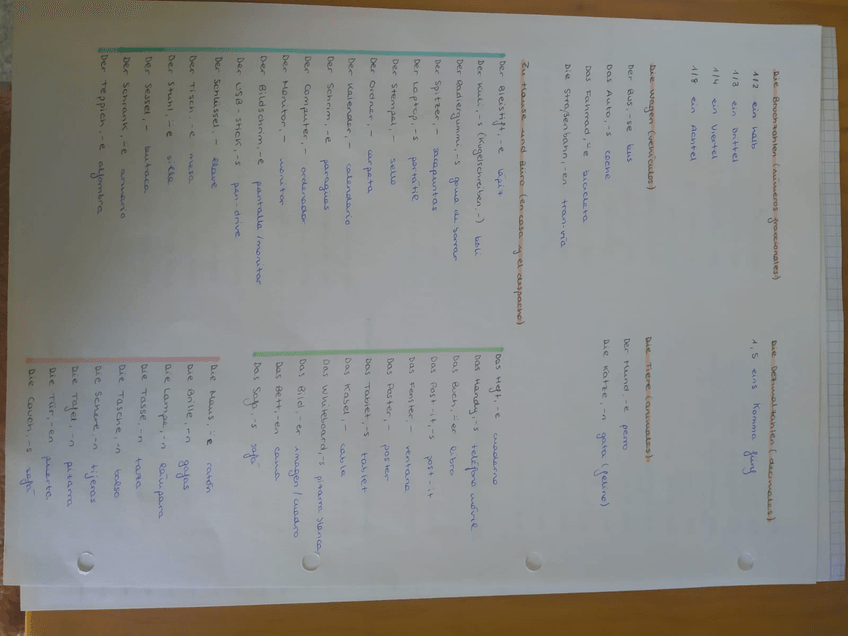 Die Bruchzahlen (números fraccionales)
1/2 ein halb
1/3 ein Drittel
1/4 ein Viertel
1/8 ein Achtel
Die Dezimalzahlen (decimales)
1,5 eins Komma fünf
Die Wagen (vehículos)
Der Bus, -se bus
Das Auto, -s coche
Das Fahrrad, -̈e bicicleta
Die Straßenbahn, -en tranvía
Die Tiere (animales)
Der Hund, -e perro
Die Katze, -n gata (felino)
Zu Hause und Büro (en casa y el despacho)
Der Bleistift, -e lápiz
Der Kuli, -s (Kugelschreiben, -) boli
Der Radiergummi, -s goma de borrar
Der Spitzer, - sacapuntas
Der Laptop, -s portátil
Der Stempel, - sello
Der Ordner, - carpeta
Der Kalender, - calendario
Der Schrim, -e paraguas
Der Computer, - ordenador
Der Monitor, - monitor
Der Bildschrim, -e pantalla/monitor
Der USB-Stick, -s pen-drive
Der Schlüssel, - llave
Der Tisch, -e mesa
Der Stuhl, -̈e silla
Der Sessel, - butaca
Der Schrank, -̈e armario
Der Teppich, -e alfombra
Das Heft, -e cuaderno
Das Handy, -s teléfono móvil
Das Buch, -̈er libro
Das Post-it, -s post-it
Das Fenster, - ventana
Das Poster, - poster
Das Tablet, -s tablet
Das Kabel, - cable
Das Whiteboard, -s pizarra blanca
Das Bild, -er imagen/cuadro
Das Bett, -en cama
Das Sofa, -s sofá
Die Maus, -̈e ratón
Die Brille, -n gafas
Die Lampe, -n lámpara
Die Tasse, -n taza
Die Tasche, -n bolso
Die Schere, -n tijeras
Die Tafel, -n pizarra
Die Tür, -en puerta
Die Couch, -s sofá